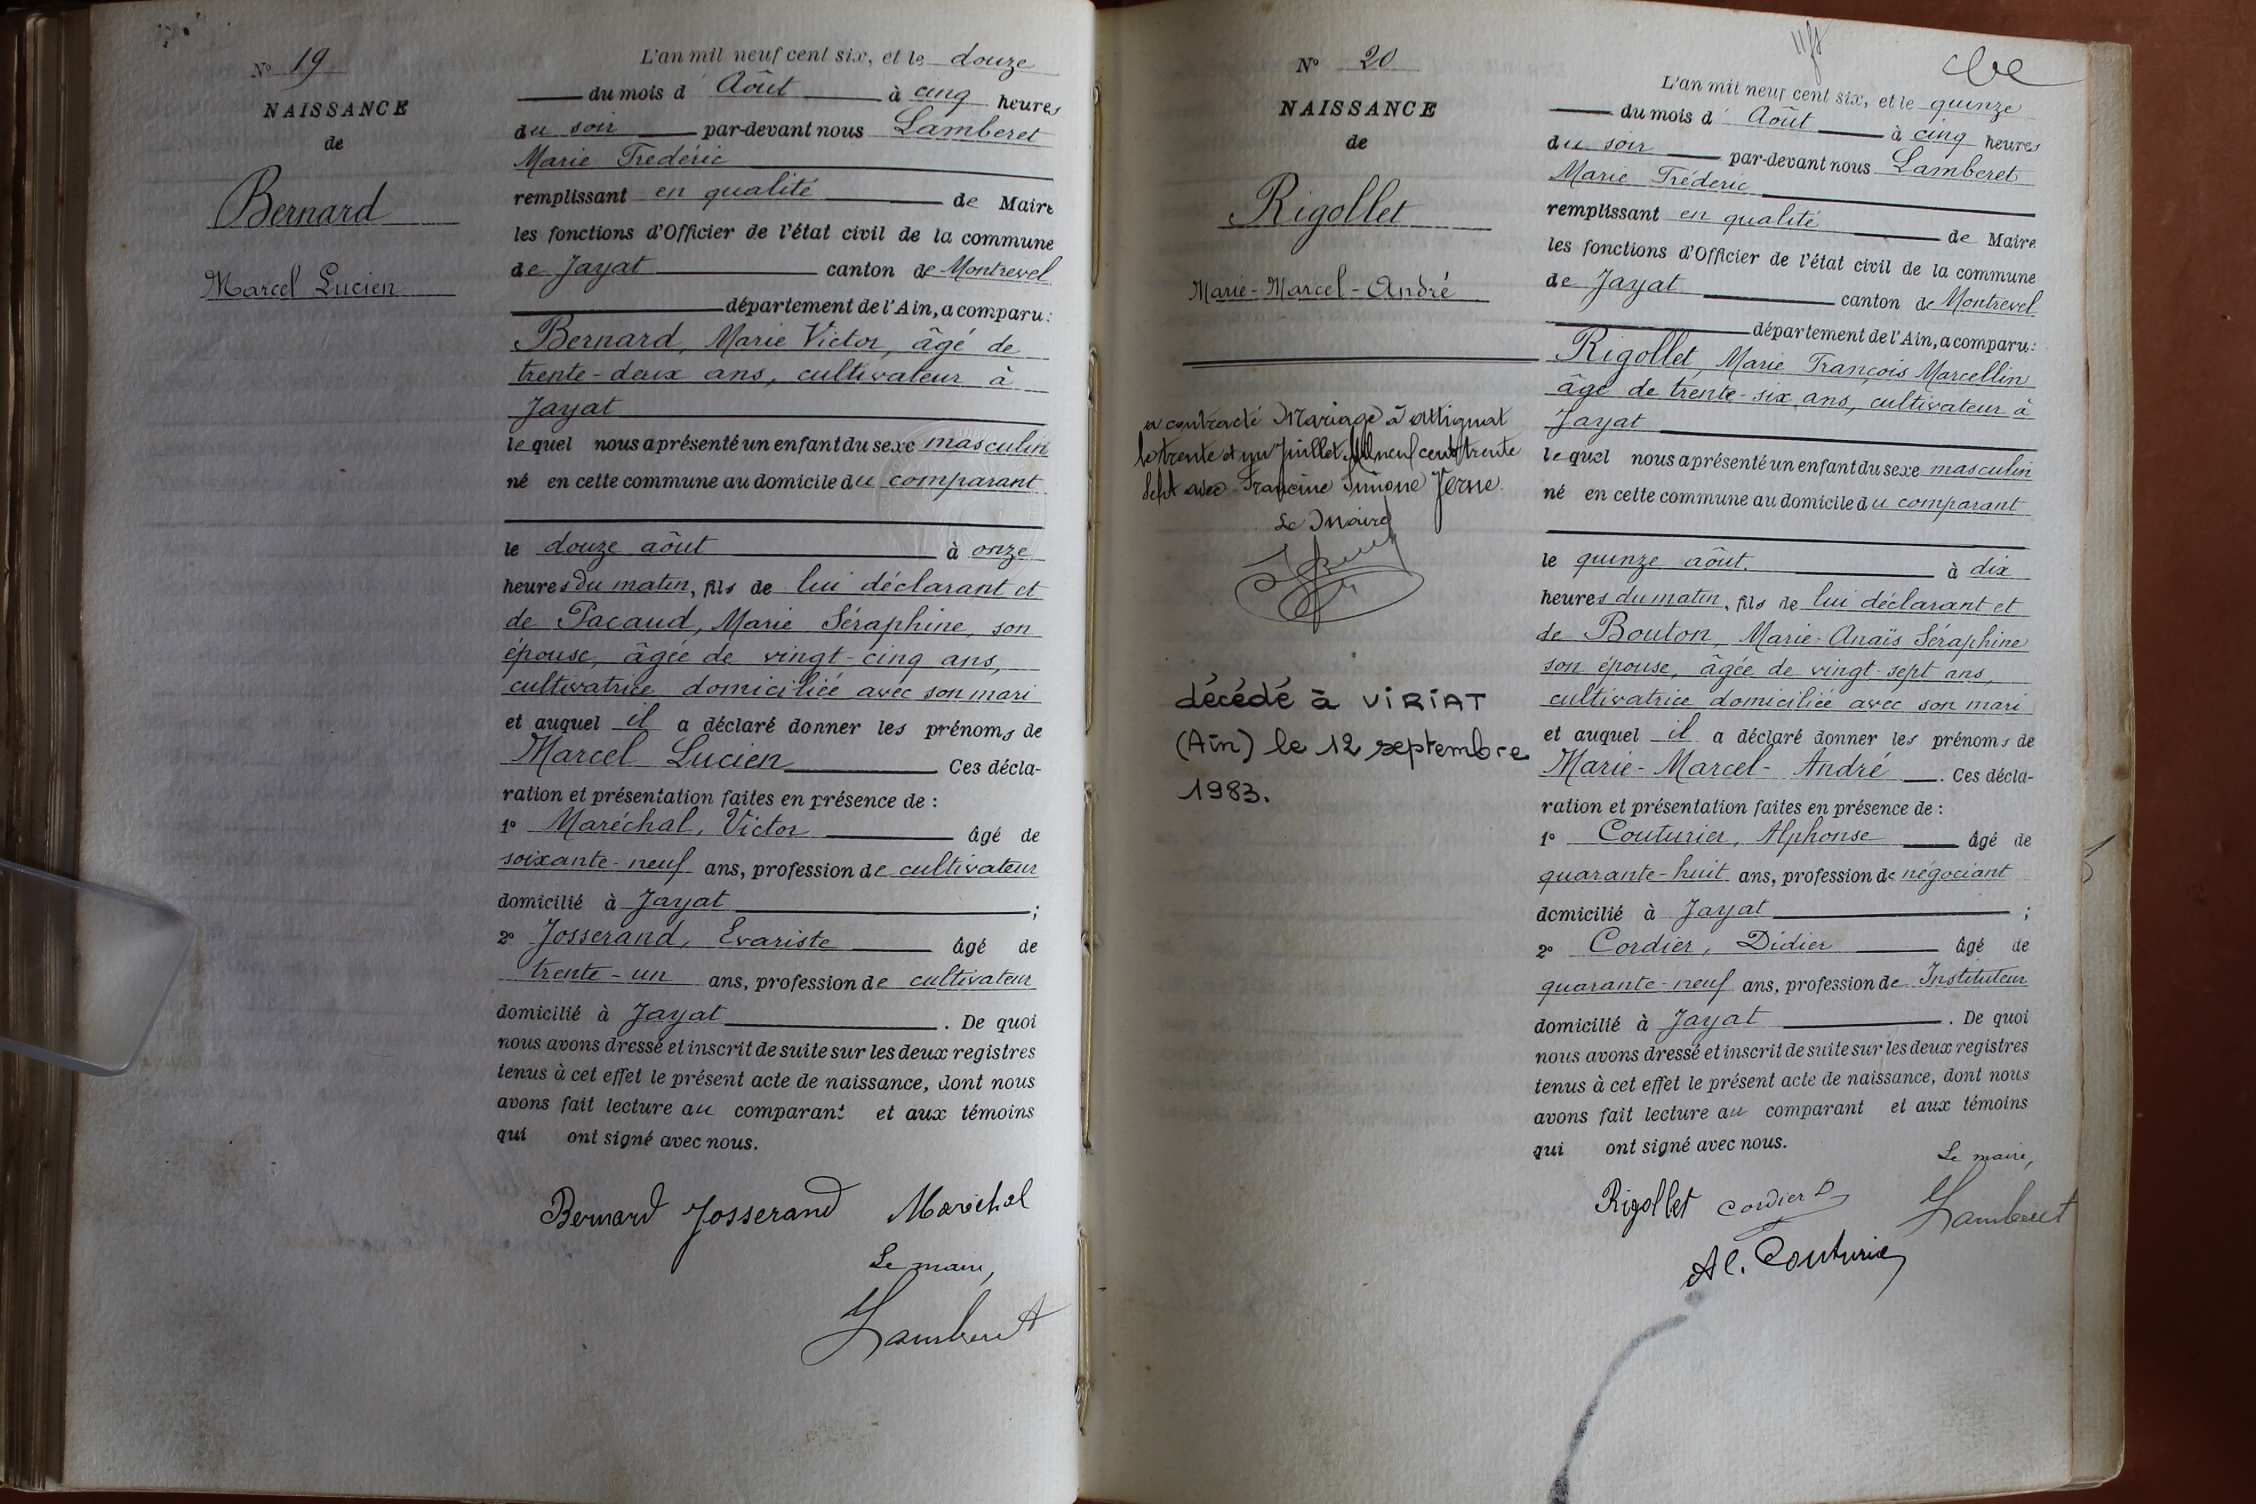 N° 19
NAISSANCE
de
Bernard
Marcel Lucien
L'an mil neuf cent six, et le douze
du mois d' Aôut à cinq heures
du soir par-devant nous Lamberet
Marie Frédéric
remplissant en qualité de Maire
les fonctions d'Officier de l'état civil de la commune
de Jayat canton de Montrevel
département de l'Ain, a comparu :
Bernard, Marie Victor, âgé de
trente-deux ans, cultivateur à
Jayat
lequel nous a présenté un enfant du sexe masculin
né en cette commune au domicile du comparant
le douze aôut à onze
heures du matin, fils de lui déclarant et
de Pacaud, Marie Séraphine, son
épouse, âgée de vingt-cinq ans,
cultivatrice domiciliée avec son mari
et auquel il a déclaré donner les prénoms de
Marcel Lucien Ces décla-
ration et présentation faites en présence de :
1° Maréchal, Victor âgé de
soixante-neuf ans, profession de cultivateur
domicilié à Jayat ;
2° Josserand, Evariste âgé de
trente-un ans, profession de cultivateur
domicilié à Jayat . De quoi
nous avons dressé et inscrit de suite sur les deux registres
tenus à cet effet le présent acte de naissance, dont nous
avons fait lecture au comparant et aux témoins
qui ont signé avec nous.
Bernard Josserand Maréchal
Le maire,
Lamberet
N° 20
NAISSANCE
de
Rigollet
Marie-Marcel-André
a contracté Mariage à Attignat
le trente et un Juillet Mil neuf cent trente
sept avec Francine Simone Ferne
Le Maire
décédé à VIRIAT
(Ain) le 12 septembre
1983.
L'an mil neuf cent six, et le quinze
du mois d' Aôut à cinq heures
du soir par-devant nous Lamberet
Marie Fréderic
remplissant en qualité de Maire
les fonctions d'Officier de l'état civil de la commune
de Jayat canton de Montrevel
département de l'Ain, a comparu :
Rigollet, Marie François Marcellin
âgé de trente-six ans, cultivateur à
Jayat
lequel nous a présenté un enfant du sexe masculin
né en cette commune au domicile du comparant
le quinze aôut. à dix
heures du matin, fils de lui déclarant et
de Bouton, Marie-Anaïs Séraphine
son épouse, âgée de vingt-sept ans,
cultivatrice domiciliée avec son mari
et auquel il a déclaré donner les prénoms de
Marie-Marcel-André . Ces décla-
ration et présentation faites en présence de :
1° Couturier, Alphonse âgé de
quarante-huit ans, profession de négociant
domicilié à Jayat ;
2° Cordier, Didier âgé de
quarante-neuf ans, profession de Instituteur
domicilié à Jayat . De quoi
nous avons dressé et inscrit de suite sur les deux registres
tenus à cet effet le présent acte de naissance, dont nous
avons fait lecture au comparant et aux témoins
qui ont signé avec nous.
Le maire,
Rigollet Cordier D Lamberet
Al. Couturier